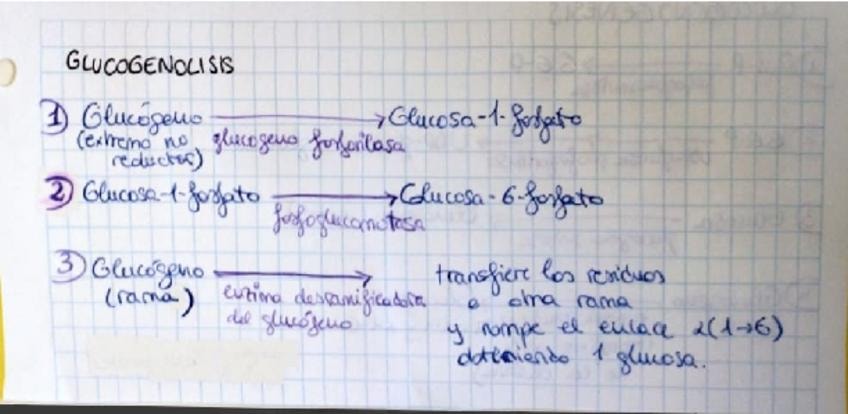 GLUCOGENOLISIS
1) Glucógeno → Glucosa-1-fosfato
(extremo no reductor) glucogeno fosforilasa
2) Glucosa-1-fosfato → Glucosa-6-fosfato
fosfoglucomutasa
3) Glucógeno → transfiere los residuos
(rama) enzima desramificadora a otra rama
del glucógeno y rompe el enlace α(1→6)
obteniendo 1 glucosa.